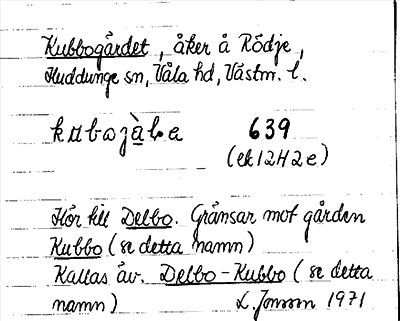 Kubbogärdet, åker å Rödje,
Huddunge sn, Våla hd, Västm. l.
639
(ek 12H2e)
Hör till Delbo. Gränsar mot gården
Kubbo (se detta namn)
Kallas äv. Delbo-Kubbo (se detta
namn) L. Jonson 1971